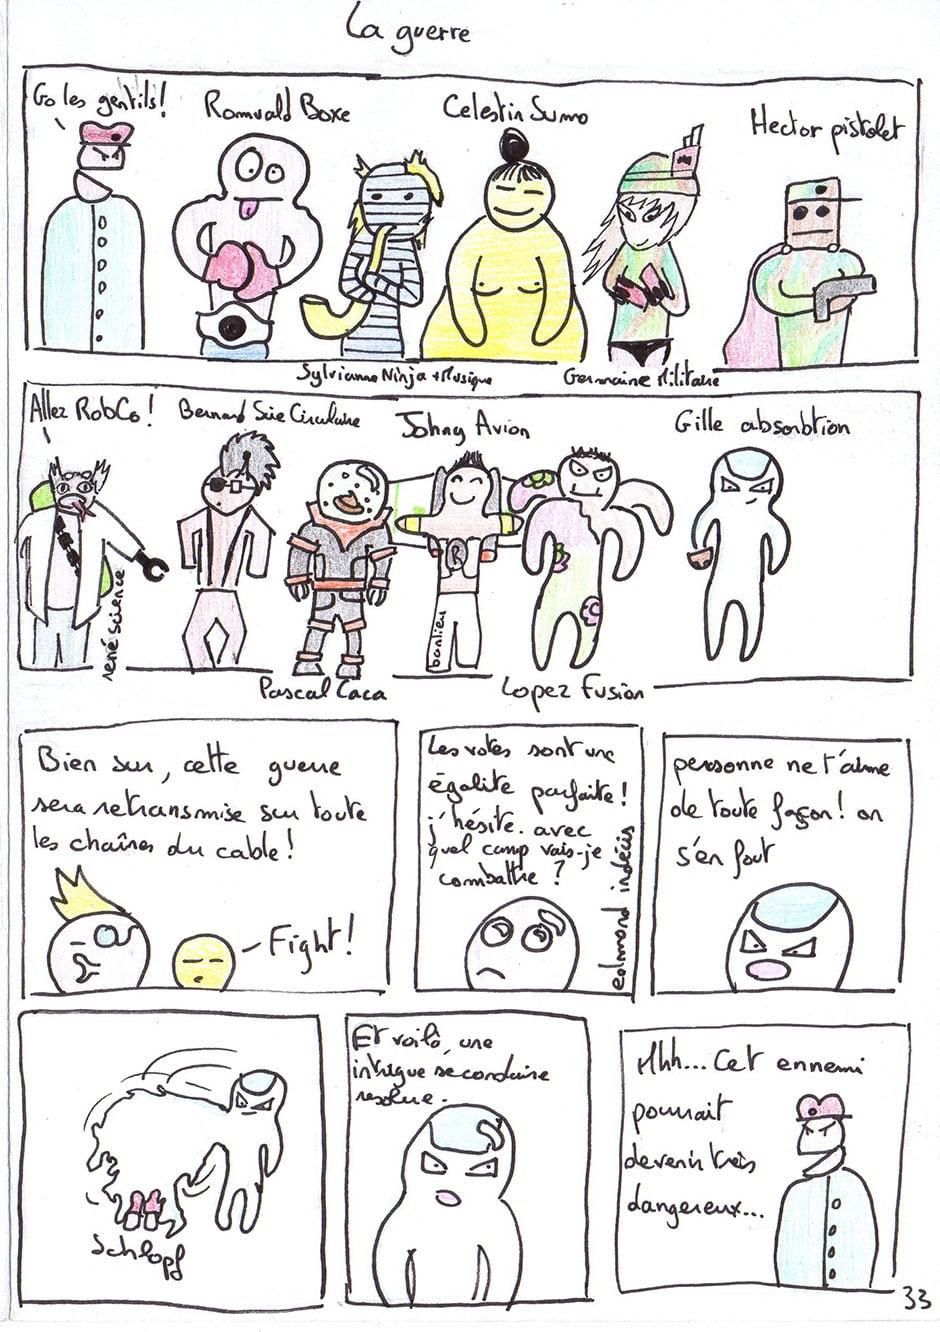 La guerre
Go les gentils!
Romuald Boxe
Celestin Sumo
Hector pistolet
Sylvianne Ninja + Musique
Germaine Militaire
Allez RobCo!
Bernard Scie Circulaire
Johny Avion
Gille absorbtion
rené science
R
banlieu
Pascal Caca
Lopez Fusion
Bien sur, cette guerre
sera retransmise sur toute
les chaînes du cable!
Fight!
Les votes sont une
égalité parfaite!
j'hésite. avec
quel camp vais-je
combattre?
edmond indécis
personne ne t'aime
de toute façon! on
s'en fout
Schlopf
Et voilà, une
intrigue secondaire
resolue.
Hhh... Cet ennemi
pourrait
devenir très
dangereux...
33